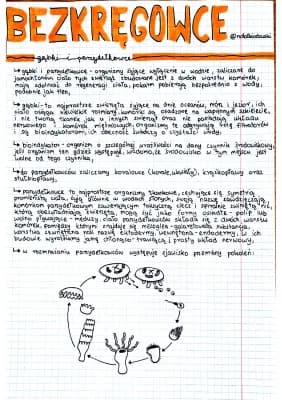 BEZKRĘGOWCE
gąbki i parzydełkowce
↳ gąbki i parzydełkowce - organizmy żyjące wyłącznie w wodzie, zaliczane do
jamochłonów. Ciało tych zwierząt zbudowane jest z dwóch warstw komórek,
mają zdolność do regeneracji ciała, pokarm pobierają bezpośrednio z wody,
podobnie jak tlen,
↳ gąbki - to najprostsze zwierzęta żyjące na dnie oceanów, mórz i jezior, ich
ciało osiąga niewielkie rozmiary, komórki są osadzone na wapiennym szkielecie,
i nie tworzą tkanek jak u innych zwierząt oraz nie posiadają układu
nerwowego i komórek mięśniowych, organizmy te odgrywają rolę filtratorów
i są bioindykatorem, ich obecność świadczy o czystości wody,
↳ bioindykator - organizm o szczególnej wrażliwości na dany czynnik środowiskowy,
jeśli organizm ten gdzieś występuje, wiadomo, że środowisko w tym miejscu jest
wolne od tego czynnika,
↳ do parzydełkowców zaliczamy koralowce (korale, ukwiały), krążkopławy oraz
stułbiopławy,
↳ parzydełkowce to najprostsze organizmy tkankowe, cechujące się symetrią
promienistą ciała, żyją głównie w wodach słonych, swoją nazwę zawdzięczają
komórkom parzydełkowym zawierającym toksyczną ciecz i spiralnie zwiniętą nić,
która obezwładniają zwierzęta, mogą żyć jako formy osiadłe - polip lub
wolno pływające - meduzy, ciało parzydełkowców składa się z dwóch warstw
komórek, pomiędzy którymi znajduje się mezoglea - galaretowata substancja,
warstwa zewnętrzna nosi nazwę ektodermy, wewnętrzna - endodermy, w ich
budowie wyróżniamy jamę chłonąco-trawiącą i prosty układ nerwowy,
↳ w rozmnażaniu parzydełkowców występuje zjawisko przemiany pokoleń: